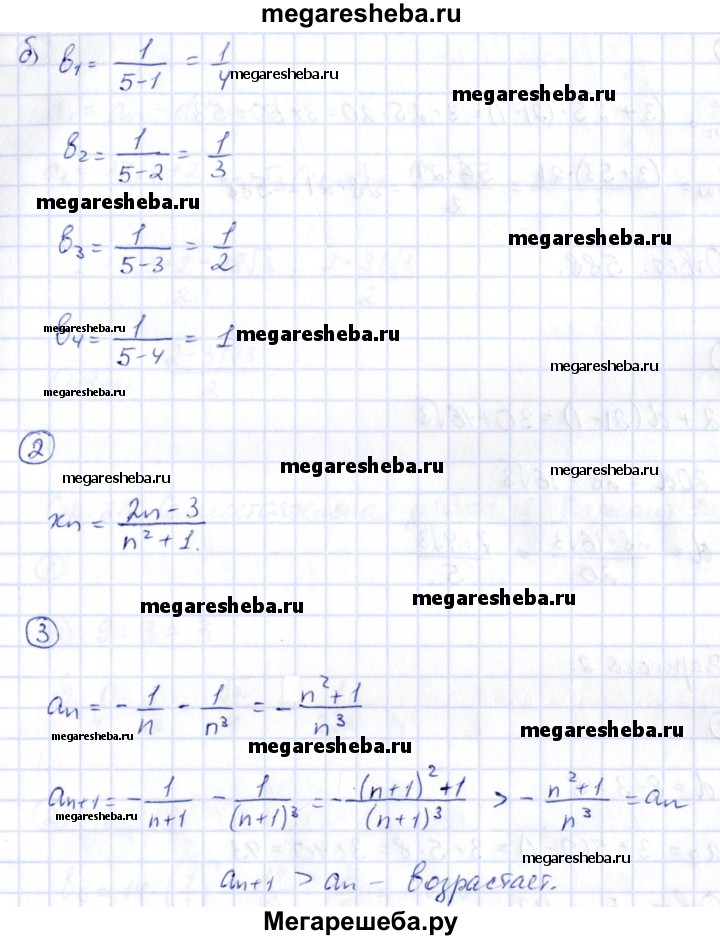 megaresheba.ru
б) b₁ = 1/(5-1) = 1/4
megaresheba.ru
megaresheba.ru
b₂ = 1/(5-2) = 1/3
megaresheba.ru
megaresheba.ru
b₃ = 1/(5-3) = 1/2
megaresheba.ru
b₄ = 1/(5-4) = 1
megaresheba.ru
megaresheba.ru
megaresheba.ru
2
megaresheba.ru
megaresheba.ru
megaresheba.ru
xn = (2n-3)/(n²+1.)
megaresheba.ru
megaresheba.ru
3
an = -1/n - 1/n³ = -(n²+1)/n³
megaresheba.ru
megaresheba.ru
megaresheba.ru
an+1 = -1/(n+1) - 1/(n+1)³ = -((n+1)²+1)/(n+1)³ > -(n²+1)/n³ = an
megaresheba.ru
megaresheba.ru
an+1 > an - возрастает.
Мегарешеба.ру